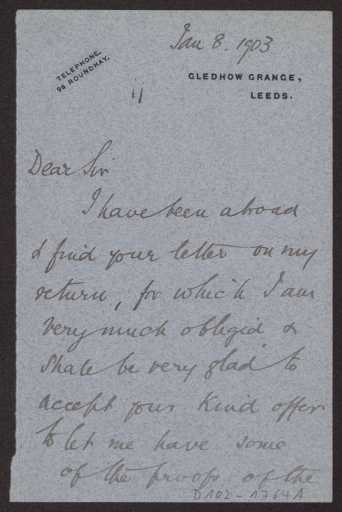 Jan 8. 1903
TELEPHONE.
98 ROUNDHAY.
GLEDHOW GRANGE,
LEEDS.
Dear Sir
I have been abroad
& find your letter on my
return, for which I am
very much obliged &
shall be very glad to
accept your kind offer
to let me have some
of the proofs of the
D102-1764A